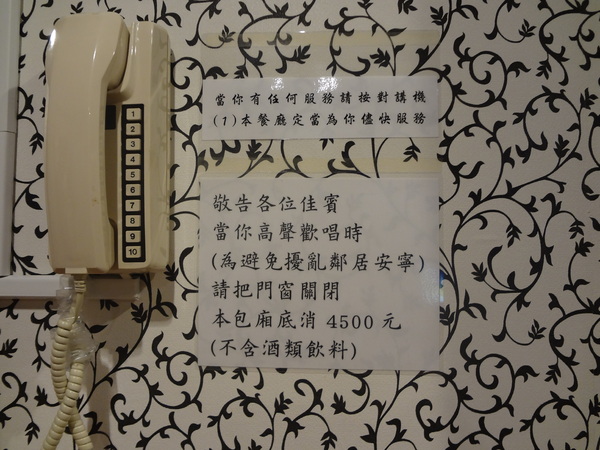 1
2
3
4
5
6
7
8
9
10
當你有任何服務請按對講機
(1)本餐廳定當為你儘快服務
敬告各位佳賓
當你高聲歡唱時
(為避免擾亂鄰居安寧)
請把門窗關閉
本包廂底消 4500 元
(不含酒類飲料)